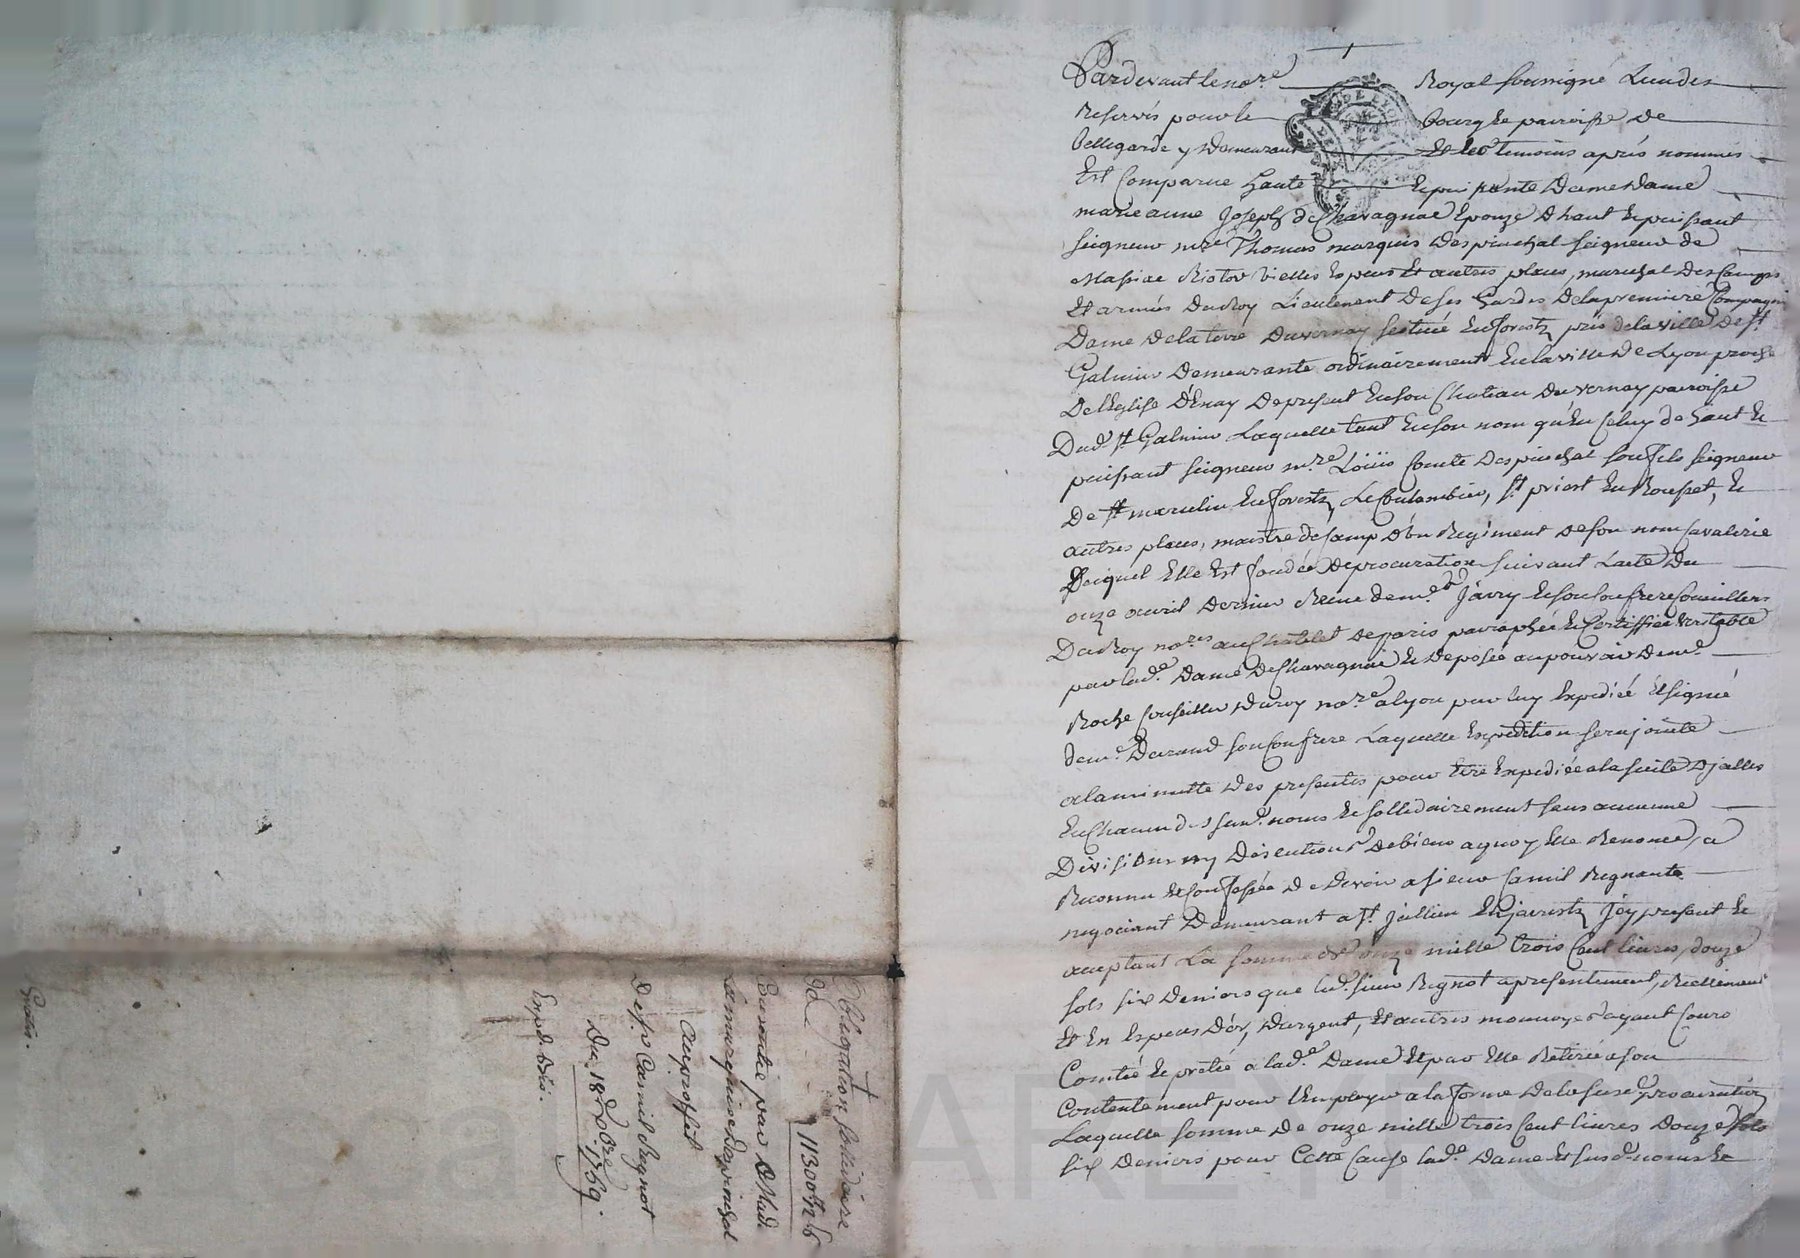 Pardevant le no.re Royal soussigné Lundes
Reservés pour le bourg et parroisse de
bellegarde y demeurant Et les temoins aprés nommés
Est Comparue haute et puissante Dame dame
marie anne Joseph de Chavagnac Epouze d'haut et puissant
seigneur m.re Thomas marquis Despinchal seigneur de
Massiac Riotor vielles Espens Et autres places, marechal des Camps
Et armées du Roy Lieutenent de ses Gardes de la premiere Compagnie
Dame de la terre Duvernay scituée En forestz prés de la ville de s.t
Galmier demeurante ordinairement En la ville de Lyon proche
De l'Eglise D'Enay De present En son Chateau du vernay parroisse
Dud. s.t Galmier Laquelle tant En son nom qu'En Celuy de haut Et
puissant seigneur m.re Loüis Comte Despinchal son fils seigneur
De s.t marcelin En forestz, Le Coulombier, s.t priest En Rousset, Et
autres places, maistre de Camp d'un Regiment de son nom Cavalerie
Duquel Elle Est fondée De procuration suivant L'acte du
onze avril dernier Receue de m.e Jarry Et son Confrere Conseillers
Du Roy no.res au Chatelet de paris paraphée Et Certiffiée veritable
par lad.e Dame De Chavagnac Et deposée au pouvoir de m.e
Roche Conseiller du roy no.re a lyon par luy Expediée Et signé
de m.e Durand son Confrere Laquelle Expedition sera jointe
a la minutte des presentes pour Etre Expediée a la suitte D'jcelles
En Chacun des susd. noms Et sollidairement sans aucune
Division ny discutions de biens a quoy Elle Renonce, a
Reconnu Et Confessée De devoir a sieur Camil Regnante
negociant Demeurant a s.t jullien En jarestz Jcy present Et
aceptant La somme de onze mille trois Cent livres, douze
sols six deniers que led. sieur Regnot a presentement, Reellement
Et En Especes D'or, d'argent, Et autres monnoyes ayant Cours
Comtée Et pretée a lad.e Dame Et par Elle Retirée a son
Contentement pour L'Employer a la forme de la susd. procuration
Laquelle somme de onze mille trois Cent livres Douze sols
six deniers pour Cette Cause lad.e Dame Et susd. noms Et
Obligation sollidaire
De 11300 12 6
Consentie par Mad.
La marquise despinchal
Au proffit
De s.r Camil Regnot
Du 18 8bre 1769.
Exped. Bdis.